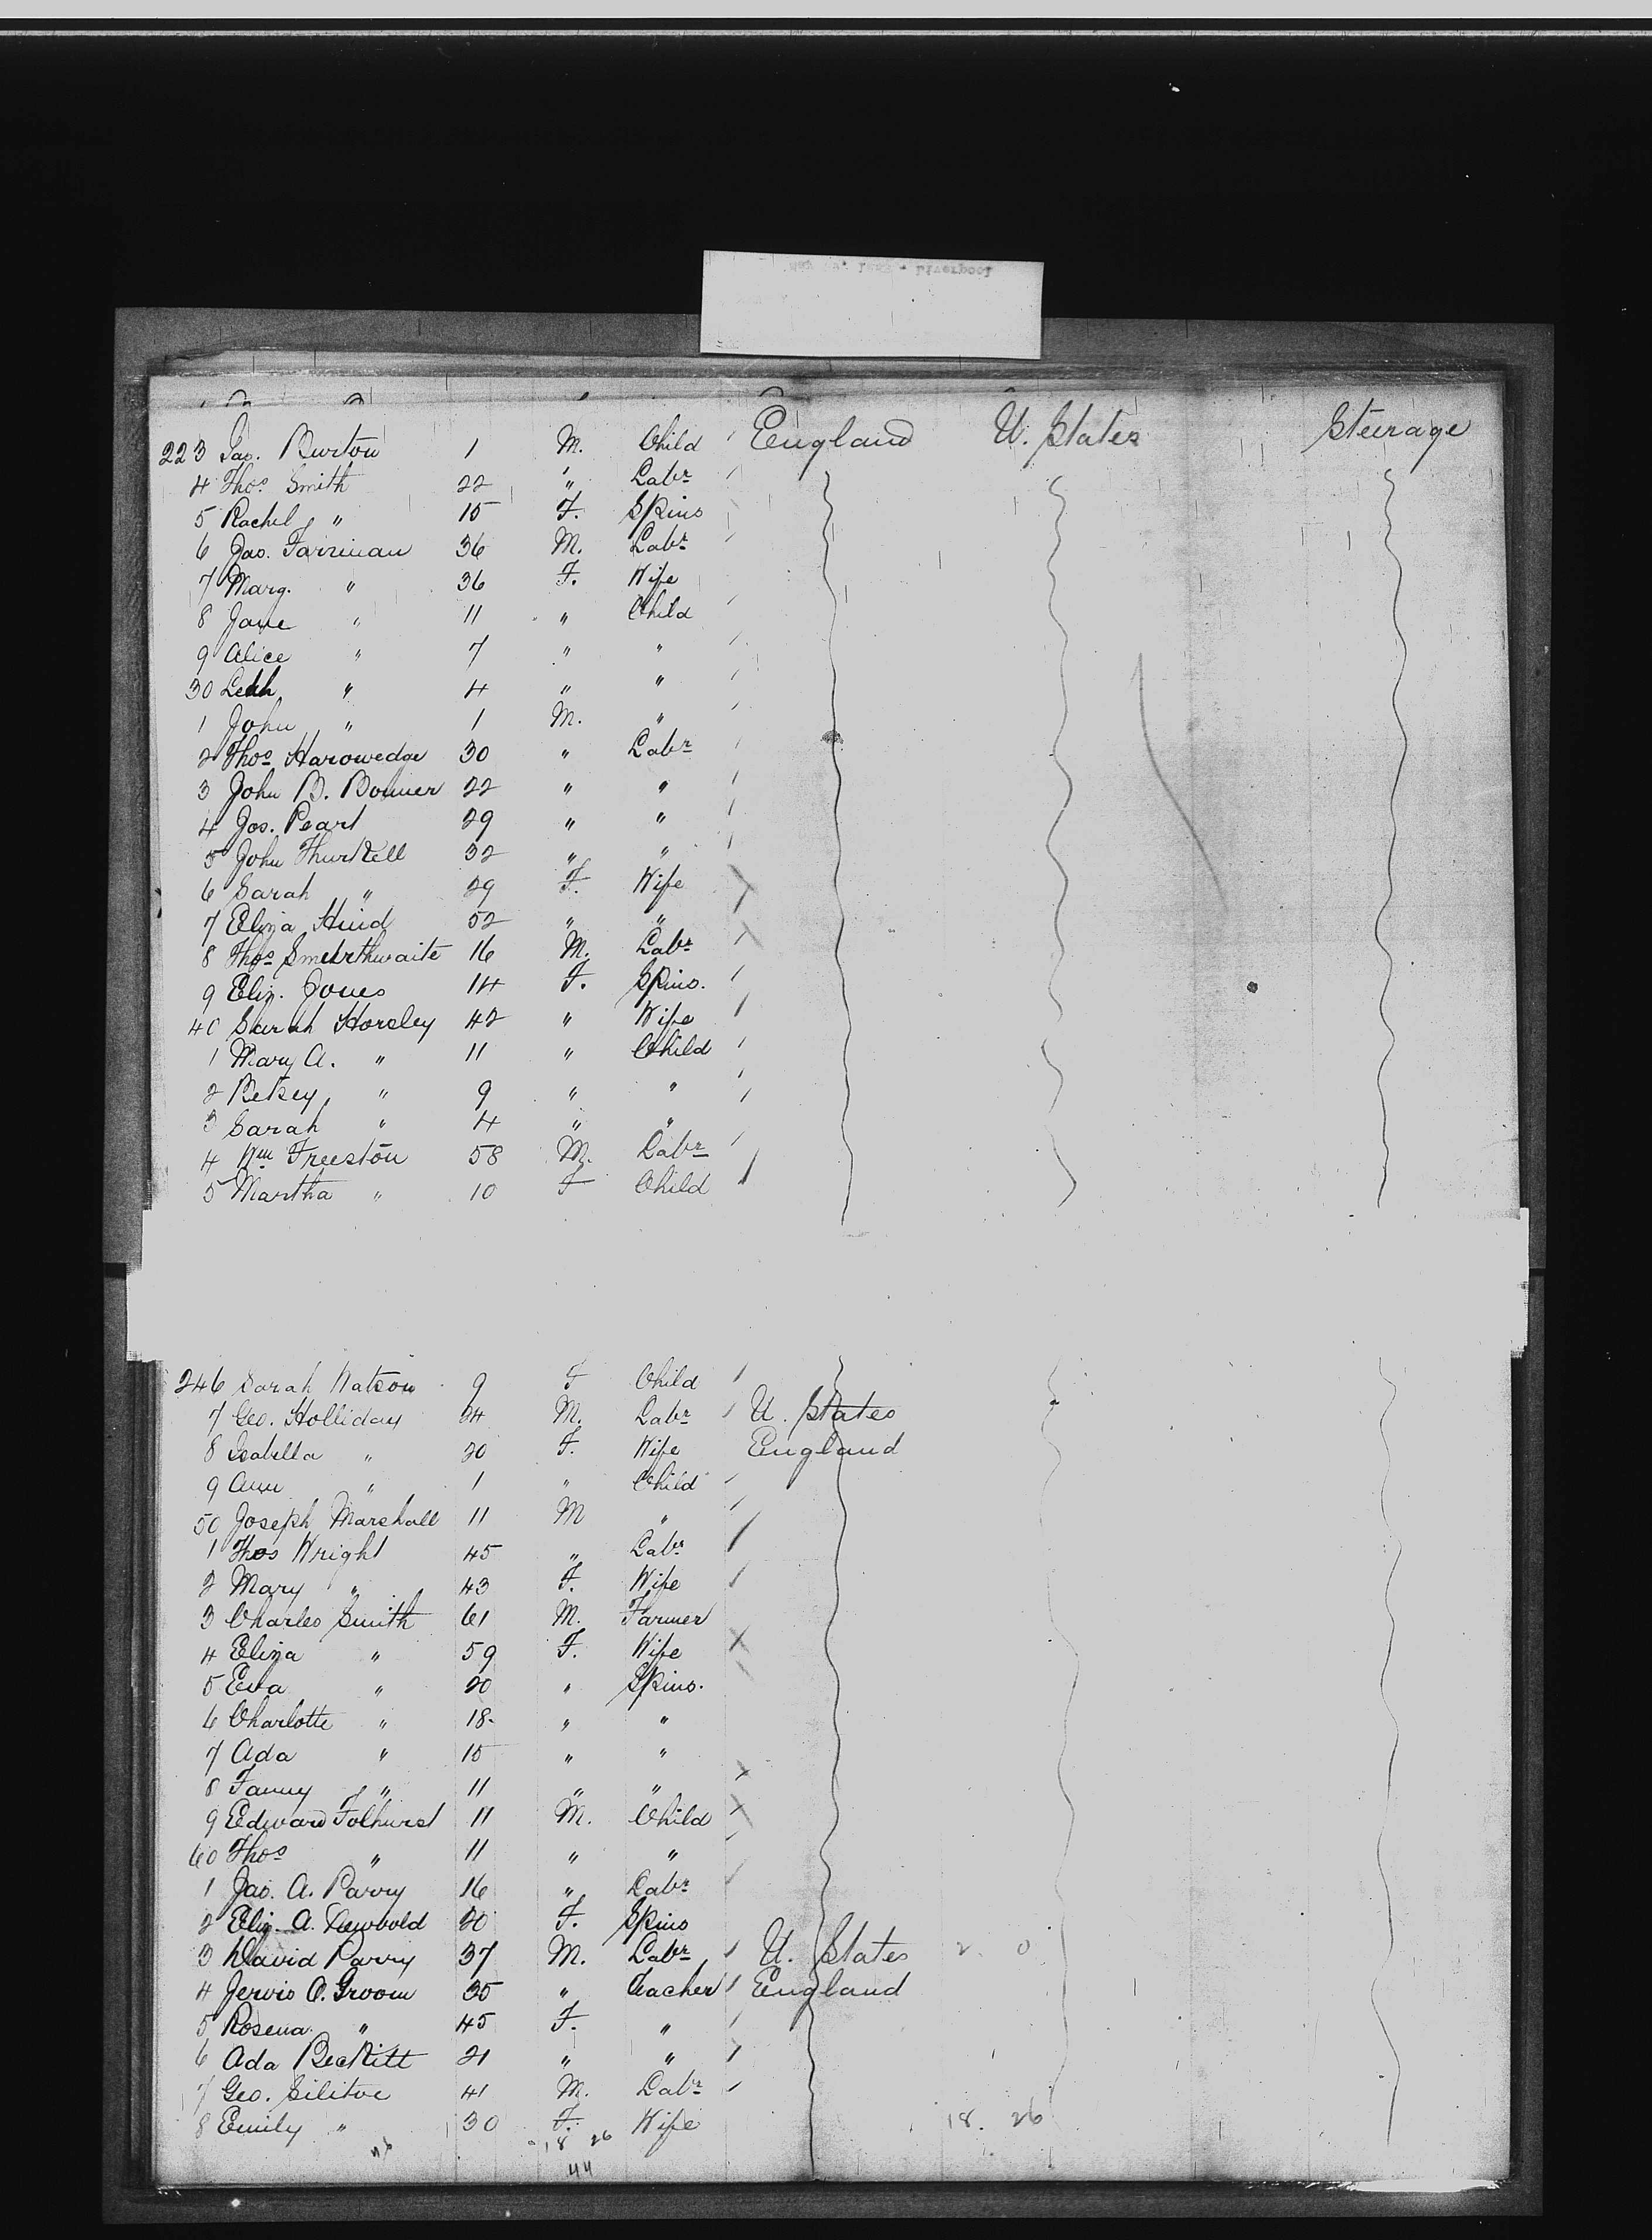 Liverpool
223 Jas. Burton 1 M. Child England U. States Steerage
4 Thos. Smith 22 " Labr
5 Rachel " 15 F. Spins
6 Jas. Farriman 36 M. Labr
7 Marg. " 36 F. Wife
8 Jane " 11 " Child
9 Alice " 7 " "
30 Leah " 4 " "
1 John " 1 M. "
2 Thos. Harowedge 30 " Labr
3 John B. Bonner 22 " "
4 Jos. Peart 29 " "
5 John Thurkell 32 " "
6 Sarah " 29 F. Wife
7 Eliza Hind 52 " "
8 Thos. Smelrthwaite 16 M. Labr
9 Eliz. Jones 14 F. Spins.
40 Sarah Horsley 42 " Wife
1 Mary A. " 11 " Child
2 Betsey " 9 " "
3 Sarah " 4 " "
4 Wm Freeston 58 M. Labr
5 Martha " 10 F Child
246 Sarah Watson 9 F Child
7 Geo. Holliday 24 M. Labr U. States
8 Isabella " 20 F. Wife England
9 Ann " 1 " Child
50 Joseph Marshall 11 M "
1 Thos Wright 45 " Labr
2 Mary " 43 F. Wife
3 Charles Smith 61 M. Farmer
4 Eliza " 59 F. Wife
5 Eva " 20 " Spins.
6 Charlotte " 18 " "
7 Ada " 15 " "
8 Fanny " 11 " "
9 Edward Tolhurst 11 M. Child
60 Thos " 11 " "
1 Jas. A. Parry 16 " Labr
2 Eliz. A. Newbold 20 F. Spins
3 David Parry 37 M. Labr U. States 2. 0
4 Jervis O. Groom 35 " Teacher England
5 Rosena " 45 F. "
6 Ada Beckitt 21 " "
7 Geo. Silitoe 41 M. Labr
8 Emily " 30 F. Wife 18. 26
18 26
44